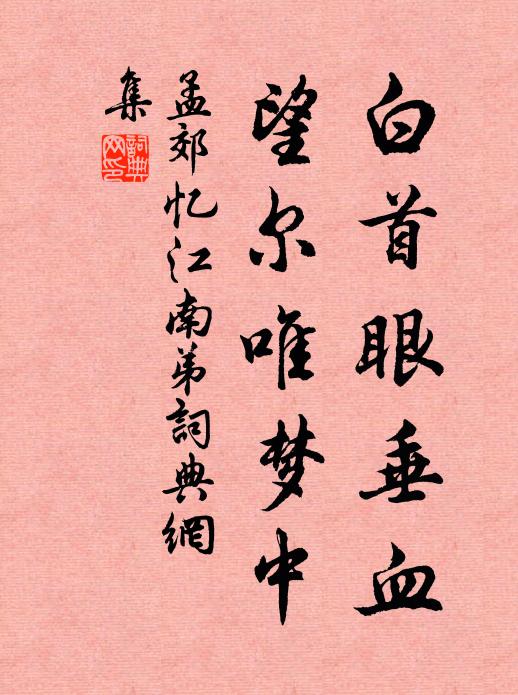 白首眼垂血
望尔唯梦中
孟郊忆江南弟詞典網
集
詞典
网印